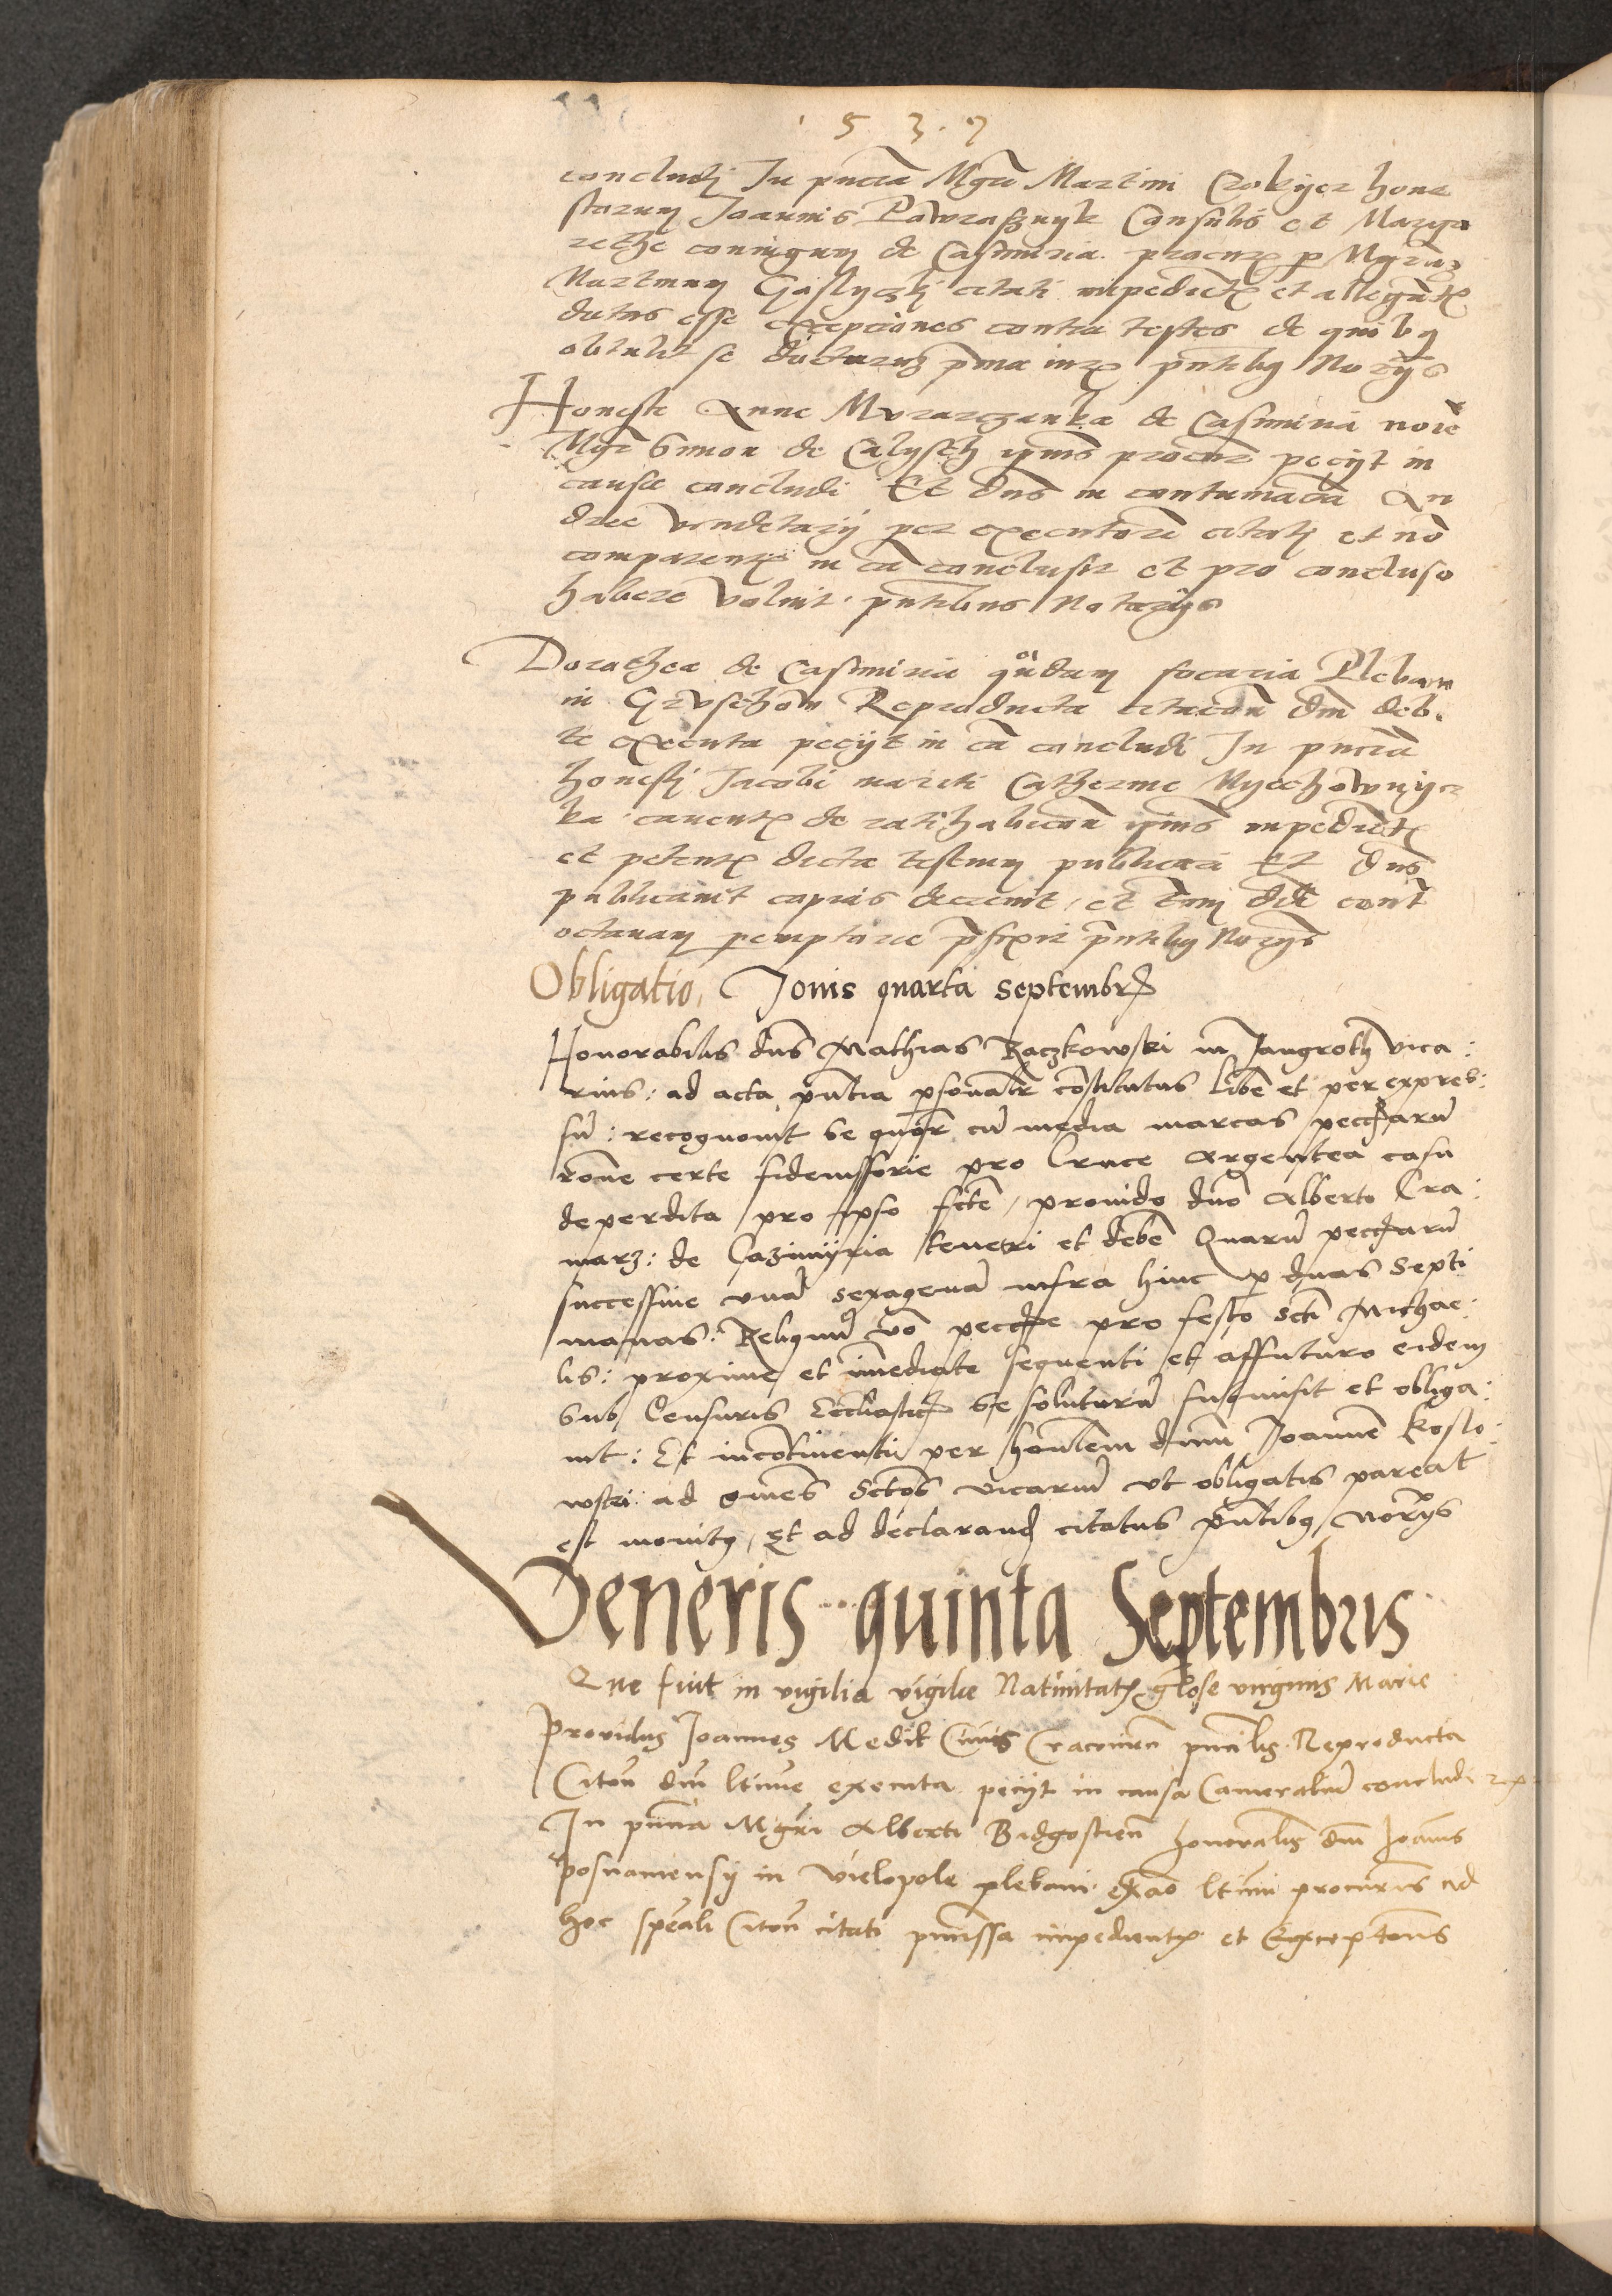 1 5 3 7
concludi In pncia Mgri Martini Crokyer hone
storum Joannis Pawrassnyk Consulis et Marga
rethe coniugum de Casimiria procur per Mgrum
Martinum citati impedient et allegant
datas esse exceptiones contra testes de quibus
obtulit se docturum pma iur pntibus Norijs
Honeste Anne Mvrarzanka de Casimiria noie
Mgr Simon de Calysch ipius procur peciit in
causa concludi Et dns in contumacia An
dree Vendetarij per executore citati et no
comparent in ca conclusit et pro concluso
habere voluit pntibus Notarijs
Dorothea de Casimiria quodam focaria Plebani
in Grvschow Reproducta citacon dni debi
te executa peciit in ca concludi In pncia
honesti Jacobi mariti Catherine Myechownyc
ka cauent de ratihabicon ipius impedient
et petent dicta testium publicari Et dns
publicauit copias decreuit et tmi dic cont
octauam peremptorie pfixit pntibus Norijs
Obligatio, Jouis quarta septembr
Honorabilis dns Mathias Raczkowski in Jangroth vica:
rius: ad acta pntia psonalr constitutus libe et per expres:
su: recognouit se quor cu media marcas pecciaru
rone certe fideiussorie pro Cruce argentea casu
deperdita pro ipso fcte, prouido dno Alberto Cra:
marz: de Cazimijria teneri et debe Quaru pecciaru
successiue vna sexagena infra hinc p duas septi
manas: Reliquu vo peccie pro festo scti Michae:
lis: proxime et imediate sequenti et affuturo eidem
sub Censuris Ecclasticis se soluturu submisit et obliga:
uit: Et incontinenti per honlem dnum Joanne Koslo:
wski ad omes sctos vicariu vt obligatis pareat
est monitus, Et ad declarand citatus pntibus Norijs
Veneris quinta Septembris
Que fuit in vigilia vigilie Natiuitatis gliose virginis Marie
Prouidus Joannes Medik Ciuis Cracouien pncilis Reproducta
Citon dni ltime executa peciit in causa Cameraliu concludi
In pncia Mgri Alberti Bidgostien honoralis dni Joanis
Posnaniensij in Vielopole plebani ltimi procuris ad
hoc speali Citon citati pmissa impedient et Exceptons